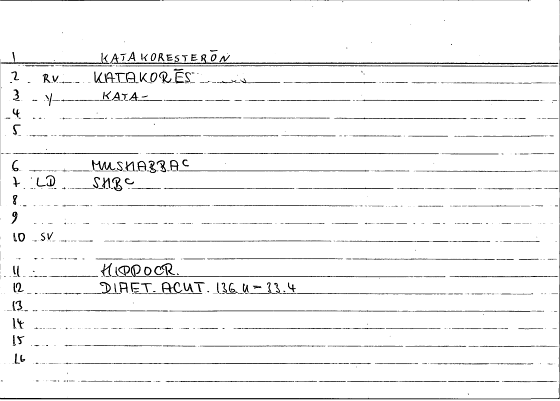 1 KATAKORESTERŌN
2 RV KATAKORĒS
3 Y KATA-
4
5
6 MUSHABBAC
7 LD SHBC
8
9
10 SV
11 HIPPOCR.
12 DIAET. ACUT. 136 U - 33.4
13
14
15
16